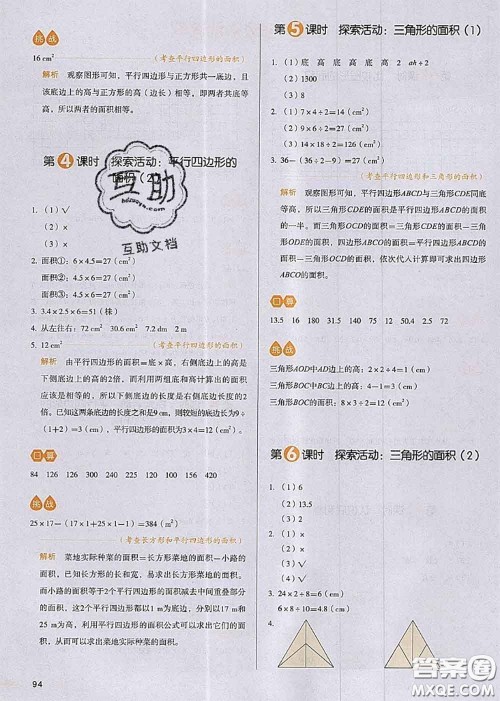 挑战
16 cm²
(考查平行四边形的面积)
解析 观察图形可知，平行四边形与正方形共一底边，且
该底边上的高与正方形的高（边长）相等，即两者共底等
高，所以两者的面积相等。
第4课时 探索活动：平行四边形的
面积（2）
1. (1) √
(2) ×
(3) ×
2. 面积①：6×4.5=27（cm²）
面积②：6×4.5=27（cm²）
面积③：6×4.5=27（cm²）
3. 3.4×2.5×6=51（株）
4. 从左往右：72 cm² 30.6 cm² 7.2 dm 54 m
5. 12 cm²
(考查平行四边形的面积)
解析 由平行四边形的面积=底×高，右侧底边上的高是
上侧底边上的高的2倍，而利用两组底和高计算出的面积
应该是相等的，所以上侧底边的长度是右侧底边长度的
2倍。已知这两条底边的长度之和是9 cm，则较短的底边长为9÷
（1+2）=3（cm），平行四边形的面积为3×4=12（cm²）。
口算
84 126 126 300 210 230 3 45 400
挑战
25×17−（17×1+25×1−1）=384（m²）
(考查长方形和平行四边形的面积)
解析 菜地实际种菜的面积=长方形菜地的面积−小路的
面积，已知长方形的长和宽，易求出长方形菜地的面积。
而小路的面积等于2个平行四边形的面积减去中间重叠部分
的面积，这2个平行四边形都以1 m为底边，分别以17 m和
25 m为高，利用平行四边形的面积公式可以求出它们的面
积，从而可以求出菜地实际种菜的面积。
94
第5课时 探索活动：三角形的面积（1）
1. 底 高 底高 底高 2 ah÷2
2. (1) 7×4÷2=14（cm²）
(2) 9×6÷2=27（cm²）
(3) 14×18÷2=126（cm²）
3. 36−（36÷2−9）=27（cm²）
(考查平行四边形和三角形的面积)
解析 观察图形可知，平行四边形ABCD与三角形CDE同底
等高，所以三角形CDE的面积是平行四边形ABCD的面积
的一半，而三角形OCD的面积=三角形CDE的面积−三角
形ODE的面积，四边形ABCO的面积=平行四边形ABCD
的面积−三角形OCD的面积，依次代入计算即可求出四边形
ABCO的面积。
口算
13.5 16 180 31.8 140 75 12 50 2.4 2.5 72
挑战
三角形AOD中AD边上的高：4÷4=1（cm）
三角形BOC中BC边上的高：4−1=3（cm）
三角形BOC的面积：8×3÷2=12（cm²）
第6课时 探索活动：三角形的面积（2）
1. (1) 6
(2) 13.5
2. (1) ×
(2) ×
(3) ×
(4) √
3. 24×2÷8=6（cm）
6×8÷10=4.8（cm）
4.
互助
互助文档
答案圈
MXQE.COM